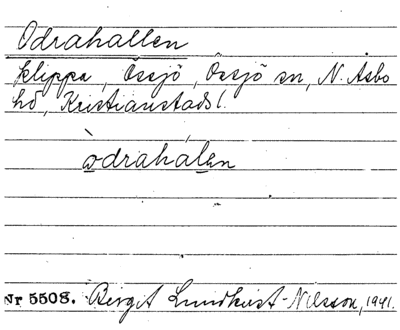 Odrahallen
klippa, Össjö, Össjö sn, N. Åsbo
hd, Kristianstads l.
òdrahálen
Nr 5508. Bergit Lundkvist-Nilsson, 1941.